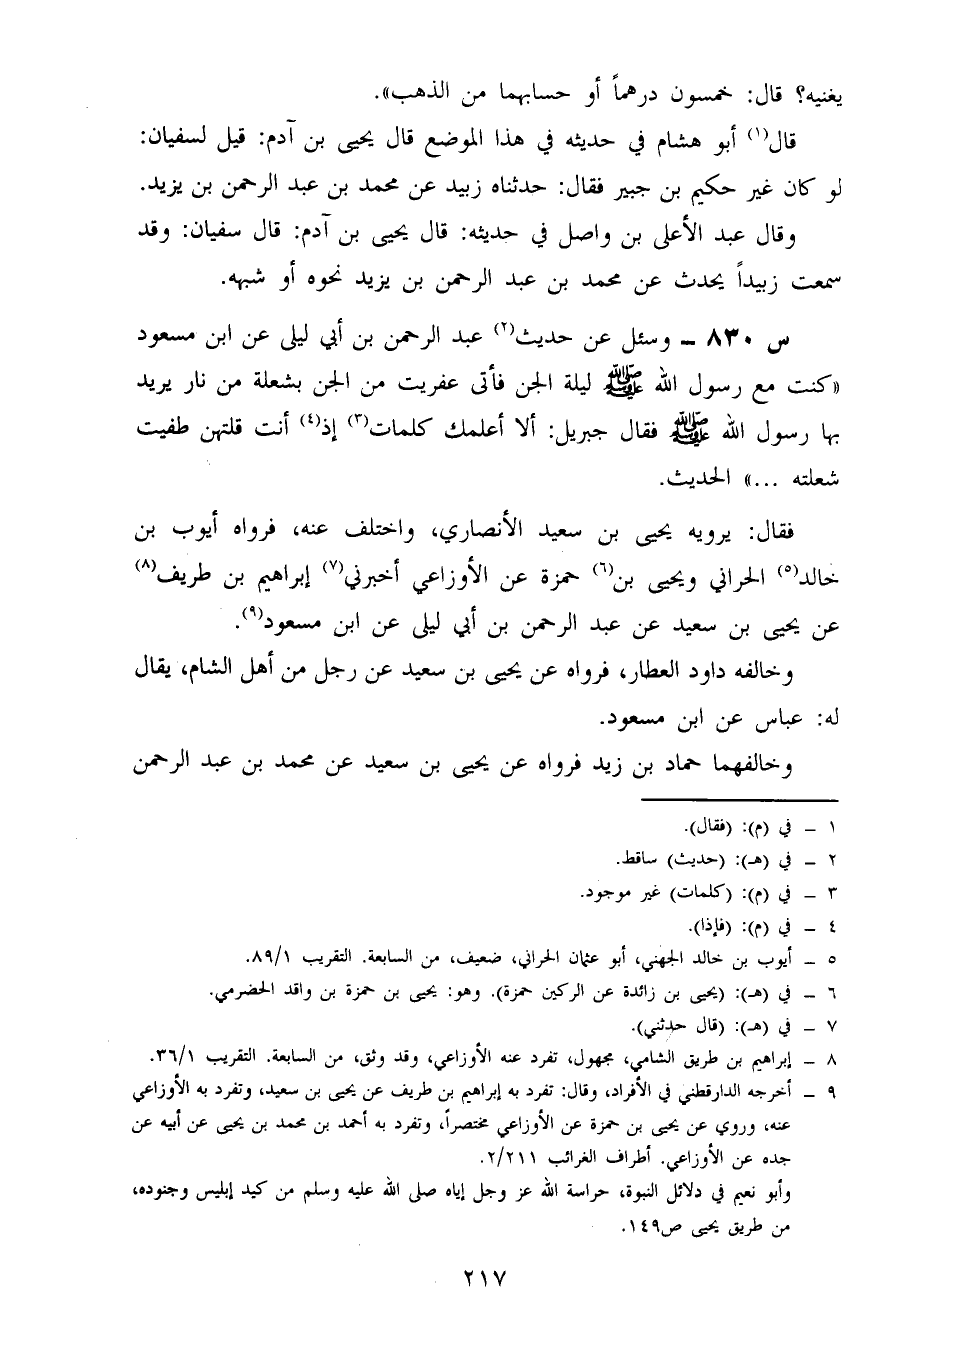 يغنيه؟ قال: خمسون درهماً أو حسابهما من الذهب».
قال(١) أبو هشام في حديثه في هذا الموضع قال يحيى بن آدم: قيل لسفيان:
لو كان غير حكيم بن جبير فقال: حدثناه زبيد عن محمد بن عبد الرحمن بن يزيد.
وقال عبد الأعلى بن واصل في حديثه: قال يحيى بن آدم: قال سفيان: وقد
سمعت زبيداً يحدث عن محمد بن عبد الرحمن بن يزيد نحوه أو شبهه.
س ٨٣٠ ــ وسئل عن حديث(٢) عبد الرحمن بن أبي ليلى عن ابن مسعود
«كنت مع رسول الله ﷺ ليلة الجن فأتى عفريت من الجن بشعلة من نار يريد
بها رسول الله ﷺ فقال جبريل: ألا أعلمك كلمات(٣) إذ(٤) أنت قلتهن طفيت
شعلته ...» الحديث.
فقال: يرويه يحيى بن سعيد الأنصاري، واختلف عنه، فرواه أيوب بن
خالد(٥) الحراني ويحيى بن(٦) حمزة عن الأوزاعي أخبرني(٧) إبراهيم بن طريف(٨)
عن يحيى بن سعيد عن عبد الرحمن بن أبي ليلى عن ابن مسعود(٩).
وخالفه داود العطار، فرواه عن يحيى بن سعيد عن رجل من أهل الشام، يقال
له: عباس عن ابن مسعود.
وخالفهما حماد بن زيد فرواه عن يحيى بن سعيد عن محمد بن عبد الرحمن
١ ــ في (م): (فقال).
٢ ــ في (هـ): (حديث) ساقط.
٣ ــ في (م): (كلمات) غير موجود.
٤ ــ في (م): (فإذا).
٥ ــ أيوب بن خالد الجهني، أبو عثمان الحراني، ضعيف، من السابعة. التقريب ٨٩/١.
٦ ــ في (هـ): (يحيى بن زائدة عن الركين حمزة). وهو: يحيى بن حمزة بن واقد الحضرمي.
٧ ــ في (هـ): (قال حدثني).
٨ ــ إبراهيم بن طريق الشامي، مجهول، تفرد عنه الأوزاعي، وقد وثق، من السابعة. التقريب ٣٦/١.
٩ ــ أخرجه الدارقطني في الأفراد، وقال: تفرد به إبراهيم بن طريف عن يحيى بن سعيد، وتفرد به الأوزاعي
عنه، وروي عن يحيى بن حمزة عن الأوزاعي مختصراً، وتفرد به أحمد بن محمد بن يحيى عن أبيه عن
جده عن الأوزاعي. أطراف الغرائب ٢/٢١١.
وأبو نعيم في دلائل النبوة، حراسة الله عز وجل إياه صلى الله عليه وسلم من كيد إبليس وجنوده،
من طريق يحيى ص١٤٩.
٢١٧